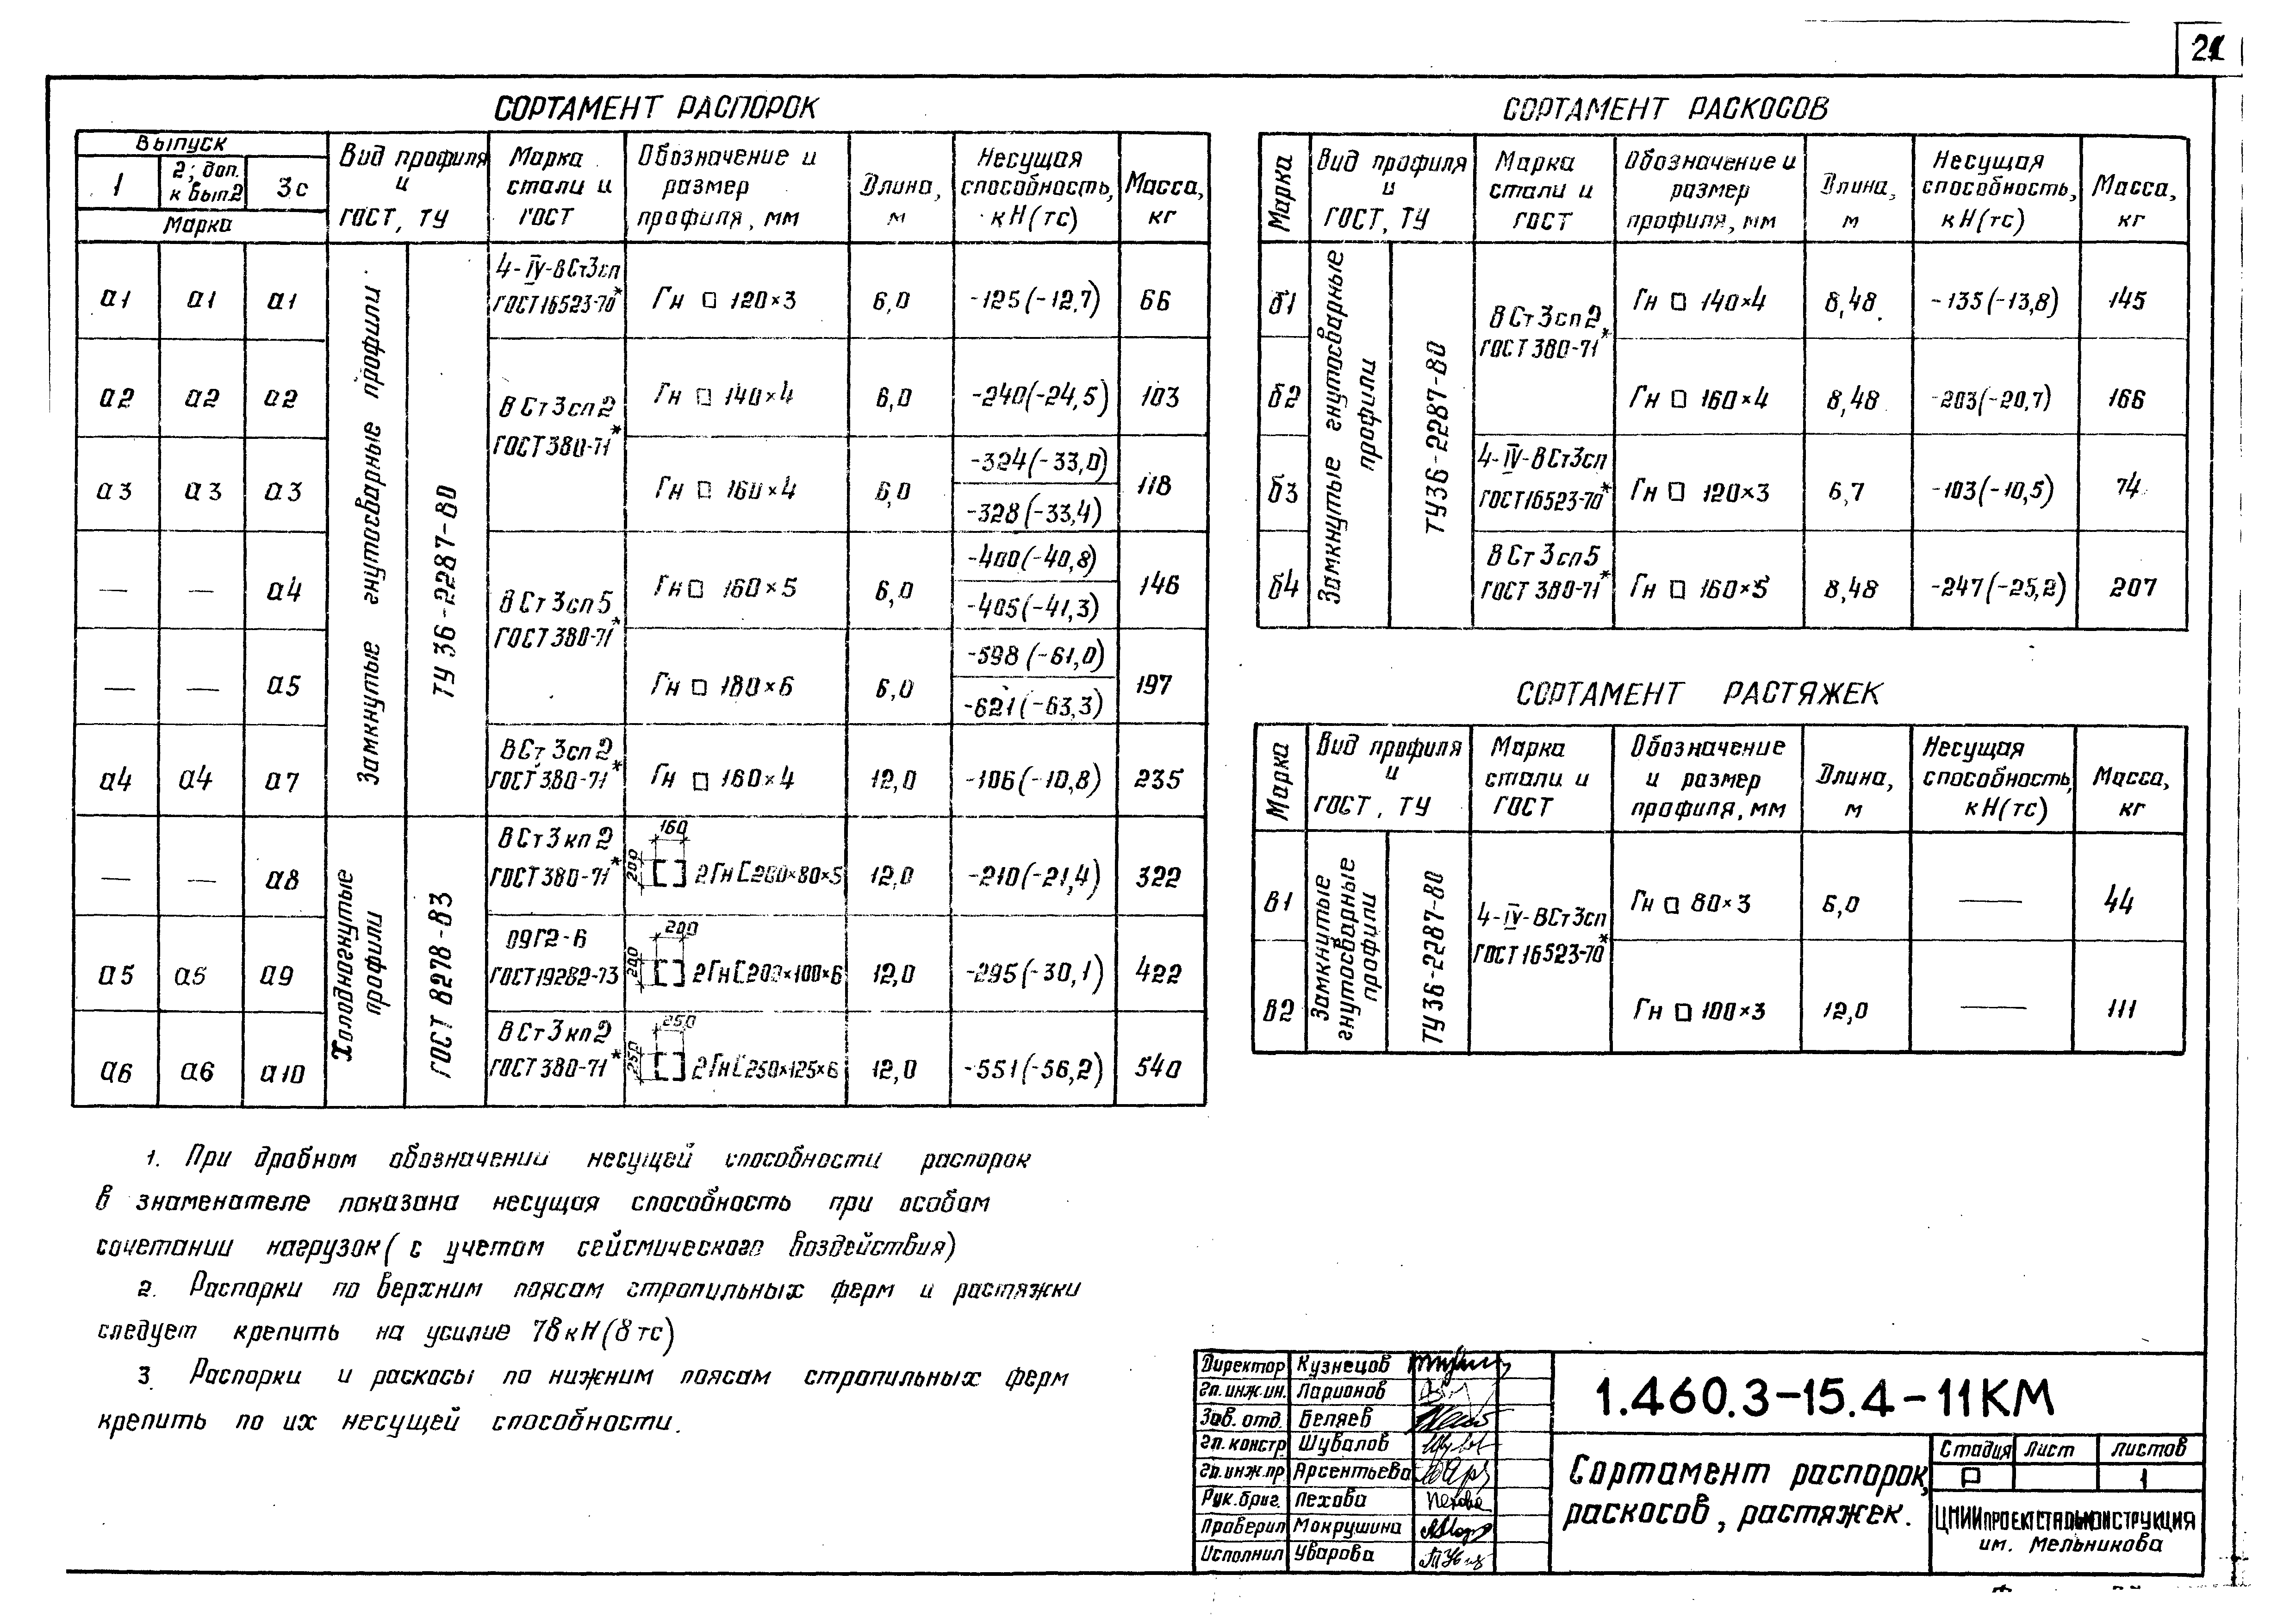 21
СОРТАМЕНТ РАСПОРОК
Выпуск
1
2; доп. к вып 2
3с
Марка
Вид профиля и ГОСТ, ТУ
Марка стали и ГОСТ
Обозначение и размер профиля, мм
Длина, м
Несущая способность, кН(тс)
Масса, кг
Замкнутые гнутосварные профили
ТУ 36-2287-80
а1 а1 а1 4-IV-ВСт3сп ГОСТ 16523-70* Гн □ 120×3 6,0 -125(-12,7) 66
а2 а2 а2 ВСт3сп2 ГОСТ 380-71* Гн □ 140×4 6,0 -240(-24,5) 103
а3 а3 а3 Гн □ 160×4 6,0 -324(-33,0) -328(-33,4) 118
— — а4 ВСт3сп5 ГОСТ 380-71* Гн □ 160×5 6,0 -400(-40,8) -405(-41,3) 146
— — а5 Гн □ 180×6 6,0 -598(-61,0) -621(-63,3) 197
а4 а4 а7 ВСт3сп2 ГОСТ 380-71* Гн □ 160×4 12,0 -106(-10,8) 235
Холодногнутые профили
ГОСТ 8278-83
— — а8 ВСт3кп2 ГОСТ 380-71* 160 200 2Гн[200×80×5 12,0 -210(-21,4) 322
а5 а5 а9 09Г2-6 ГОСТ 19282-73 200 200 2Гн[200×100×6 12,0 -295(-30,1) 422
а6 а6 а10 ВСт3кп2 ГОСТ 380-71* 250 250 2Гн[250×125×6 12,0 -551(-56,2) 540
СОРТАМЕНТ РАСКОСОВ
Марка
Вид профиля и ГОСТ, ТУ
Марка стали и ГОСТ
Обозначение и размер профиля, мм
Длина, м
Несущая способность, кН(тс)
Масса, кг
Замкнутые гнутосварные профили
ТУ36-2287-80
б1 ВСт3сп2 ГОСТ 380-71* Гн □ 140×4 8,48 -135(-13,8) 145
б2 Гн □ 160×4 8,48 -203(-20,7) 166
б3 4-IV-ВСт3сп ГОСТ 16523-70* Гн □ 120×3 6,7 -103(-10,5) 74
б4 ВСт3сп5 ГОСТ 380-71* Гн □ 160×5 8,48 -247(-25,2) 207
СОРТАМЕНТ РАСТЯЖЕК
Марка
Вид профиля и ГОСТ, ТУ
Марка стали и ГОСТ
Обозначение и размер профиля, мм
Длина, м
Несущая способность, кН(тс)
Масса, кг
Замкнутые гнутосварные профили
ТУ36-2287-80
в1 4-IV-ВСт3сп ГОСТ 16523-70* Гн □ 80×3 6,0 — 44
в2 Гн □ 100×3 12,0 — 111
1. При дробном обозначении несущей способности распорок
в знаменателе показана несущая способность при особом
сочетании нагрузок (с учетом сейсмического воздействия)
2. Распорки по верхним поясам стропильных ферм и растяжки
следует крепить на усилие 78кН(8тс)
3. Распорки и раскосы по нижним поясам стропильных ферм
крепить по их несущей способности.
Директор Кузнецов
Гл. инж.ин. Ларионов
Зав. отд. Беляев
Гл. констр Шувалов
Гл. инж.пр. Арсентьева
Рук. бриг. Пехова Пехова
Проверил Мокрушина
Исполнил Уварова
1.460.3-15.4-11КМ
Сортамент распорок,
раскосов, растяжек.
Стадия Лист Листов
Р 1
ЦНИИПРОЕКТСТАЛЬКОНСТРУКЦИЯ
им. Мельникова